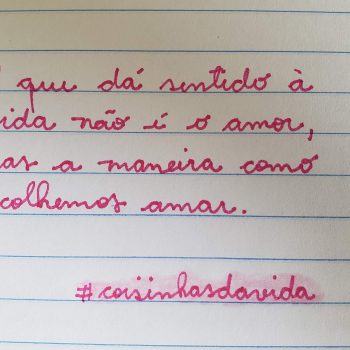 que dá sentido à
ida não é o amor,
as a maneira como
colhemos amar.
#coisinhasdavida